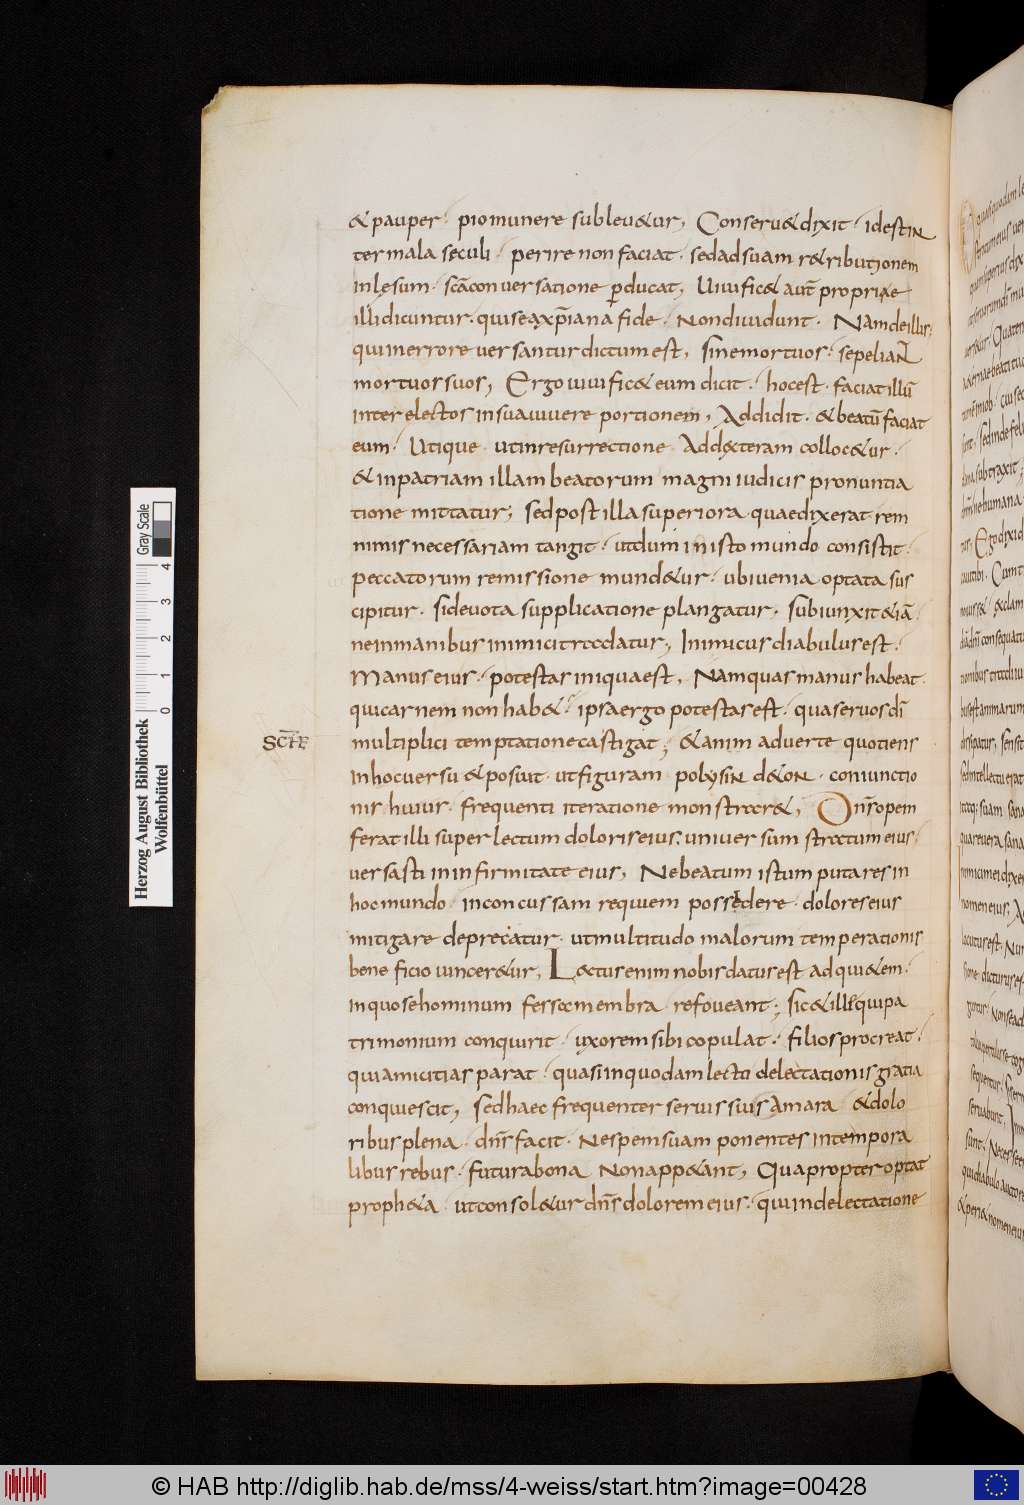 & pauper· pio munere subleu&ur, Conseru& dixit· idestin
ter mala seculi· perire non faciat· sed ad suam r&ributionem
inlęsum· sc̄a conuersatione ꝑducat, Uiuific& aut̄ propriae
illi dicuntur· qui se a xp̄iana fide· non diuidunt· Nam de illis·
qui in errore uersantur dictum est, sine mortuos· sepeliant
mortuos suos, Ergo uiuific& eum dicit· hoc est· faciat illū
inter electos in sua uiuere portionem, Addidit· & beatū faciat
eum· Utique· ut in resurrectione Ad dexteram colloc&ur·
& in patriam illam beatorum magni iudicis pronuntia
tione mittatur; sed post illa superiora quae dixerat rem
nimis necessariam tangit· ut dum in isto mundo consistit·
peccatorum remissione mund&ur· ubi uenia optata sus
cipitur· si deuota supplicatione plangatur, subiunxit & iā·
ne in manibus inimici tradatur, Inimicus diabulus est·
Manus eius· potestas iniqua est, Nam quas manus habeat·
qui carnem non hab&· ipsa ergo potestas est· qua seruos dī
SCHE
multiplici temptatione castigat; & animaduerte quotiens
in hoc uersu & posuit· ut figuram polysin d&on· coniunctio
nis huius· frequenti iteratione monstrar&, Dn̄s opem
ferat illi super lectum doloris eius· uniuersum stratum eius·
uersasti in infirmitate eius, Ne beatum istum putares in
hoc mundo inconcussam requiem possedere· dolores eius
mitigare deprecatur· ut multitudo malorum temperationis
beneficio uincer&ur, Lectus enim nobis datus est ad qui&em·
in quo se hominum fessa membra refoueant; sic & ille qui pa
trimonium conquirit· uxorem sibi copulat· filios procreat·
qui amicitias parat· quasi in quodam lecto delectationis gratia
conquiescit, sed haec frequenter seruis suis Amara & dolo
ribus plena· dn̄s facit· Ne spem suam ponentes in tempora
libus rebus· futura bona Non app&ant, Quapropter optat
proph&a ut consol&ur dn̄s dolorem eius· qui in delectatione
Herzog August Bibliothek
Wolfenbüttel
0 1 2 3 4 Gray Scale
© HAB http://diglib.hab.de/mss/4-weiss/start.htm?image=00428